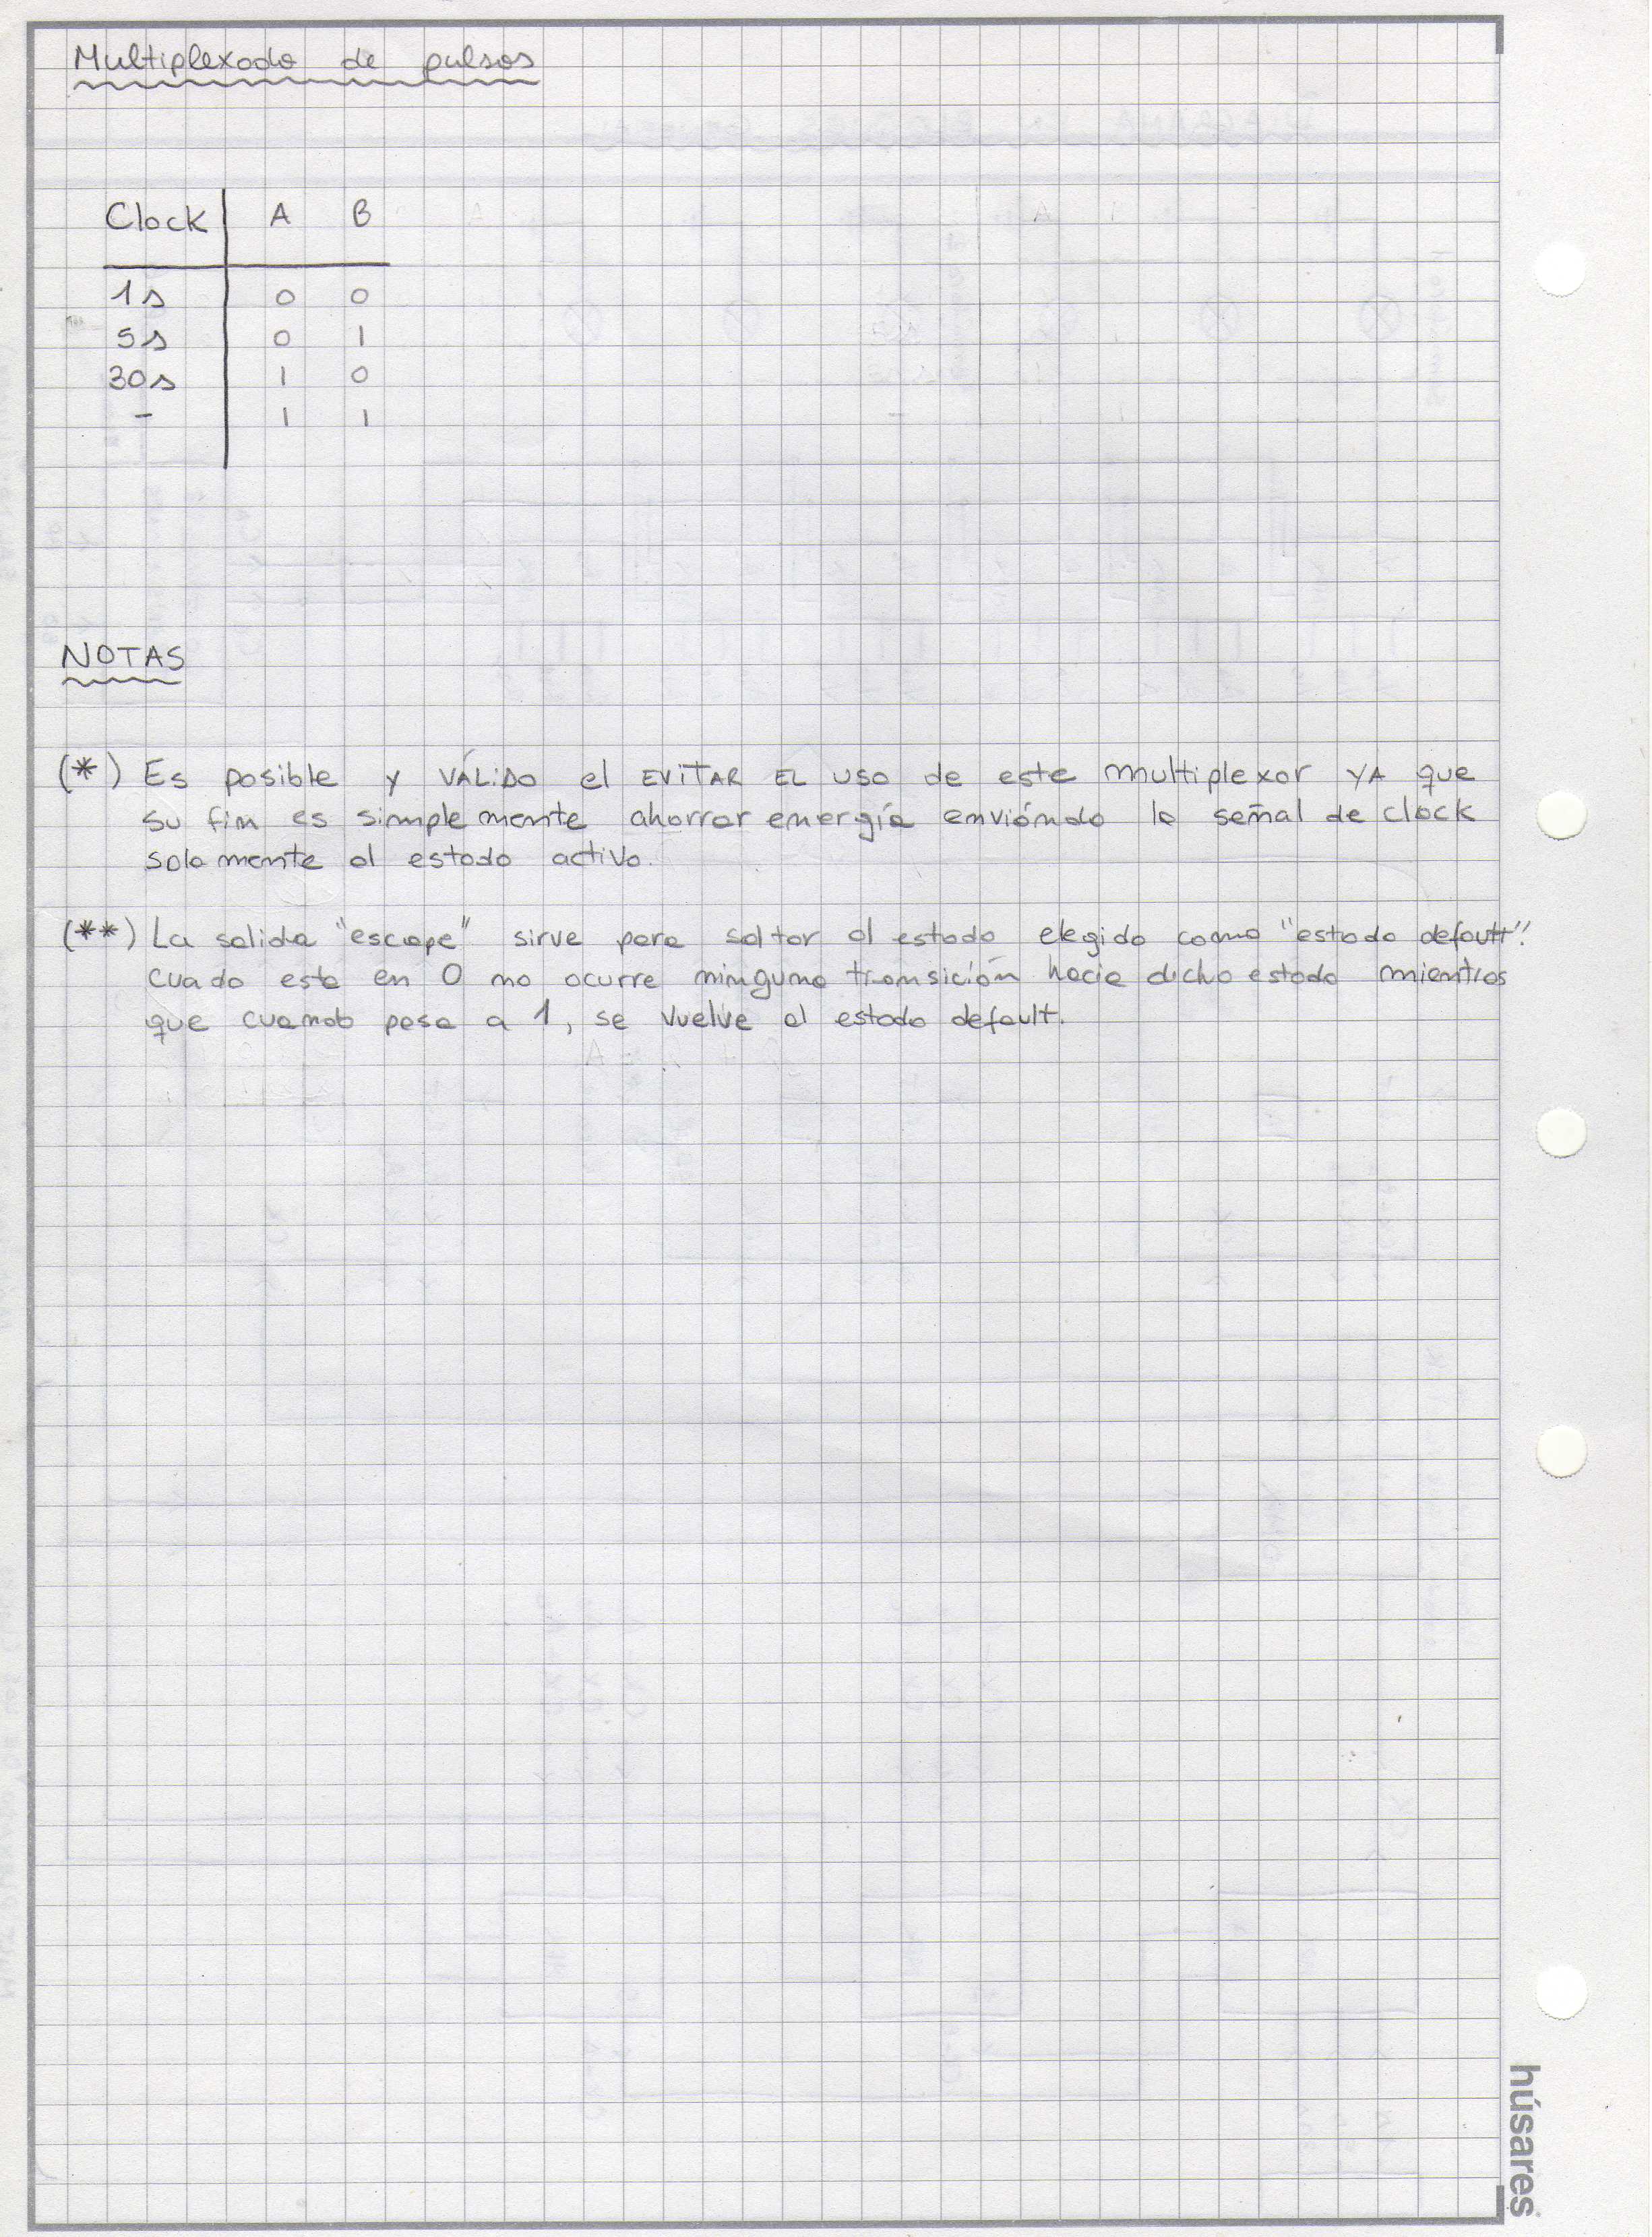 Multiplexado de pulsos
Clock A B
1s 0 0
5s 0 1
30s 1 0
- 1 1
NOTAS
(*) Es posible y VÁLIDO el EVITAR EL USO de este multiplexor YA que
su fin es simplemente ahorrar energía enviándo la señal de clock
solamente al estado activo.
(**) La salida "escape" sirve para saltar al estado elegido como "estado default".
Cuado esta en 0 no ocurre ninguna transición hacia dicho estado mientras
que cuando pasa a 1, se vuelve al estado default.
húsares